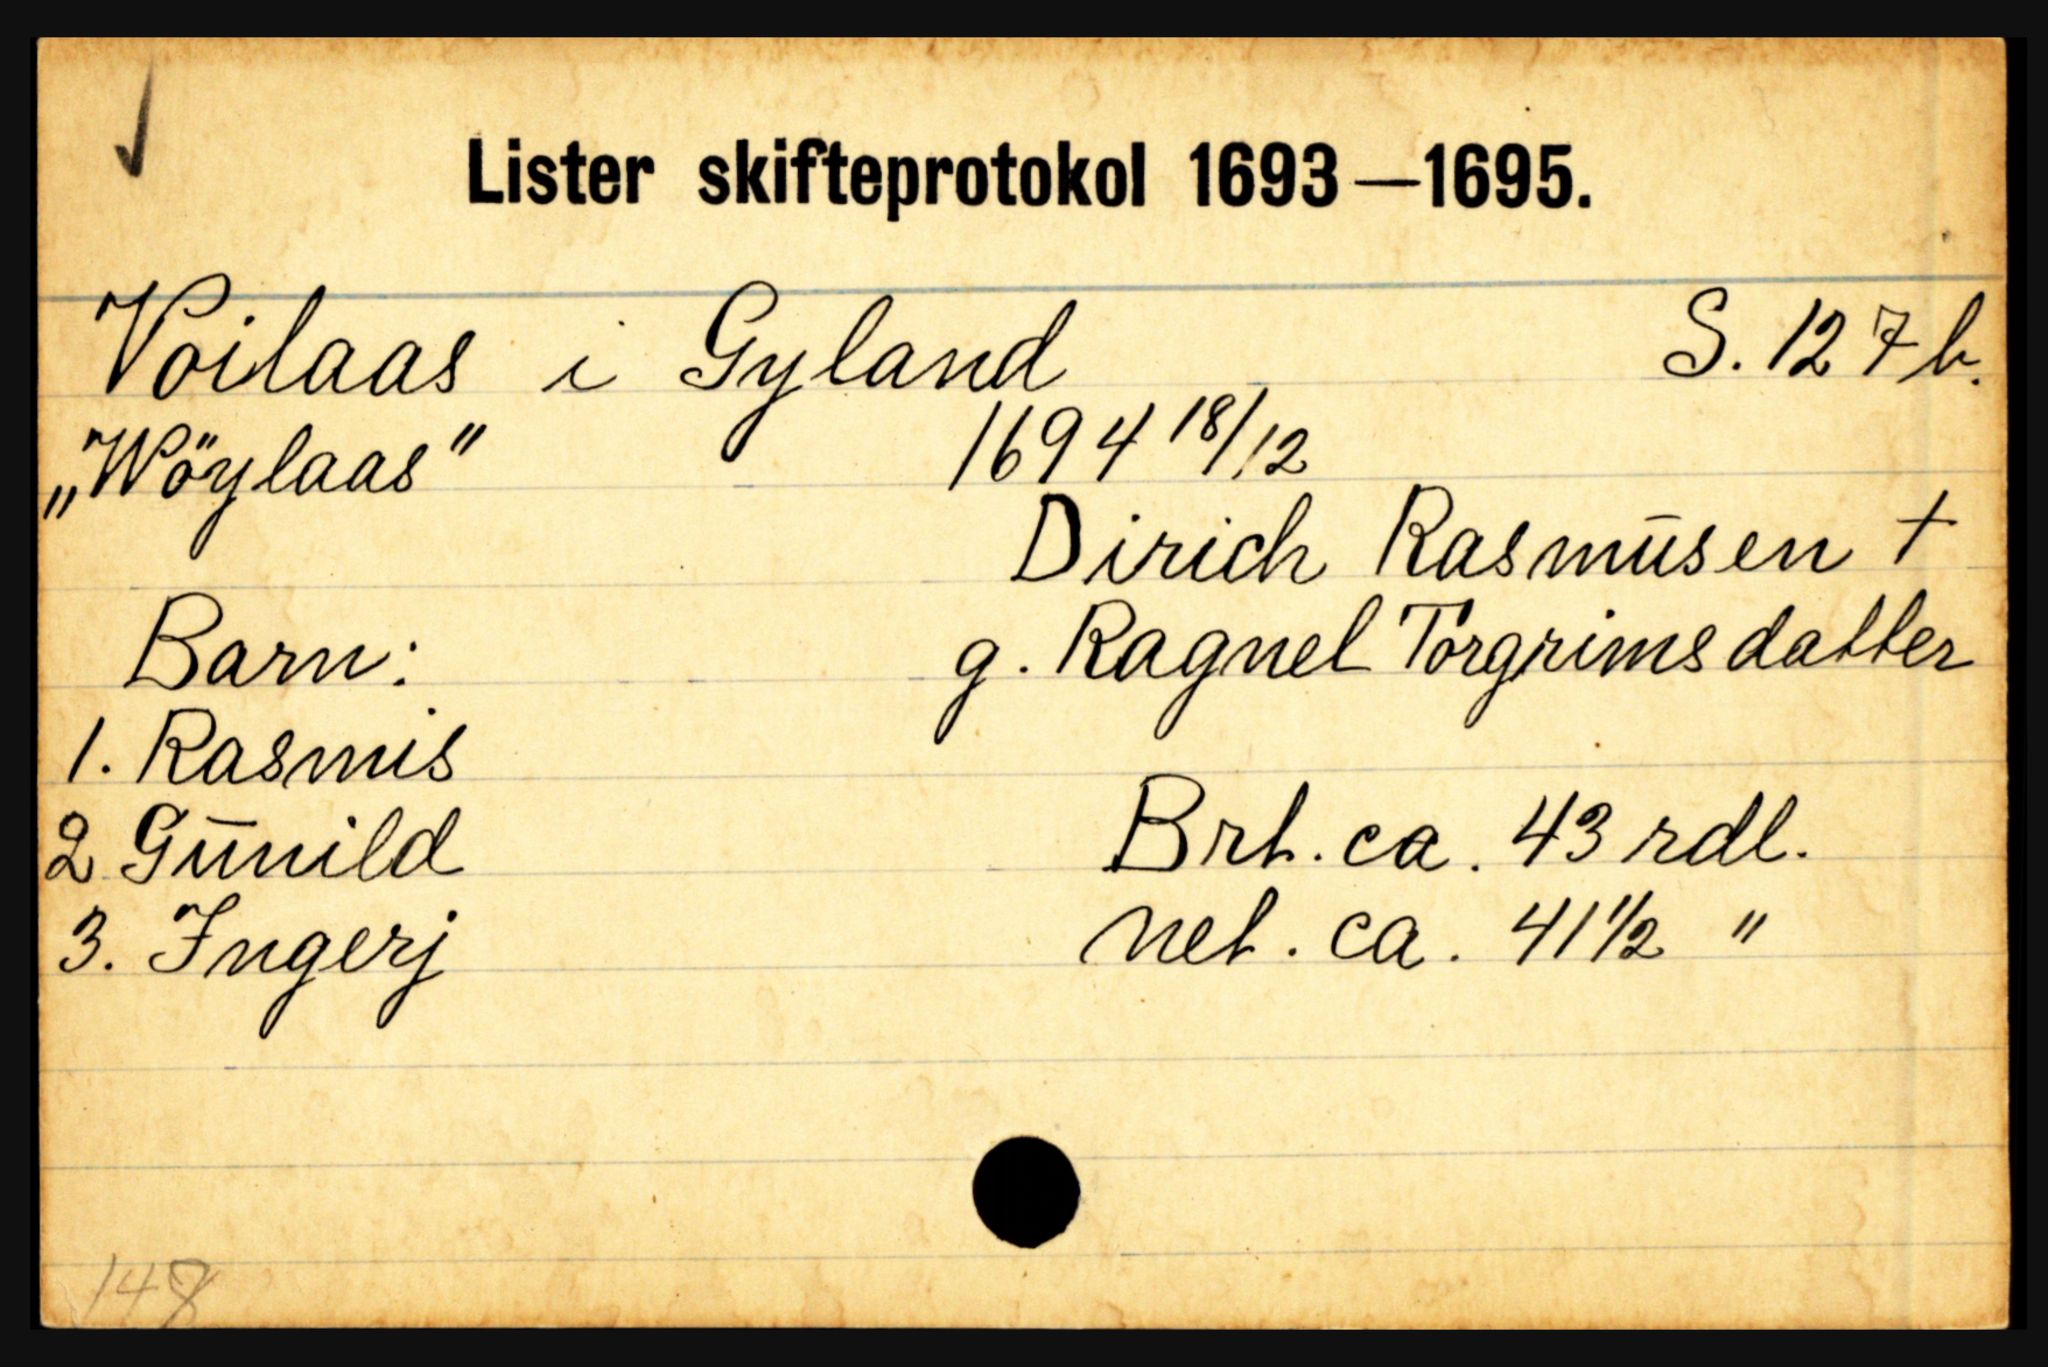 Lister skifteprotokol 1693—1695.
Voilaas i Gyland S. 127 b.
„Wöylaas" 1694 18/12
Dirich Rasmūsen +
Barn: g. Ragnel Torgrimsdatter
1. Rasmis
2 Gūnild Brt. ca. 43 rdl.
3. Ingerj net. ca. 41 1/2 "
148